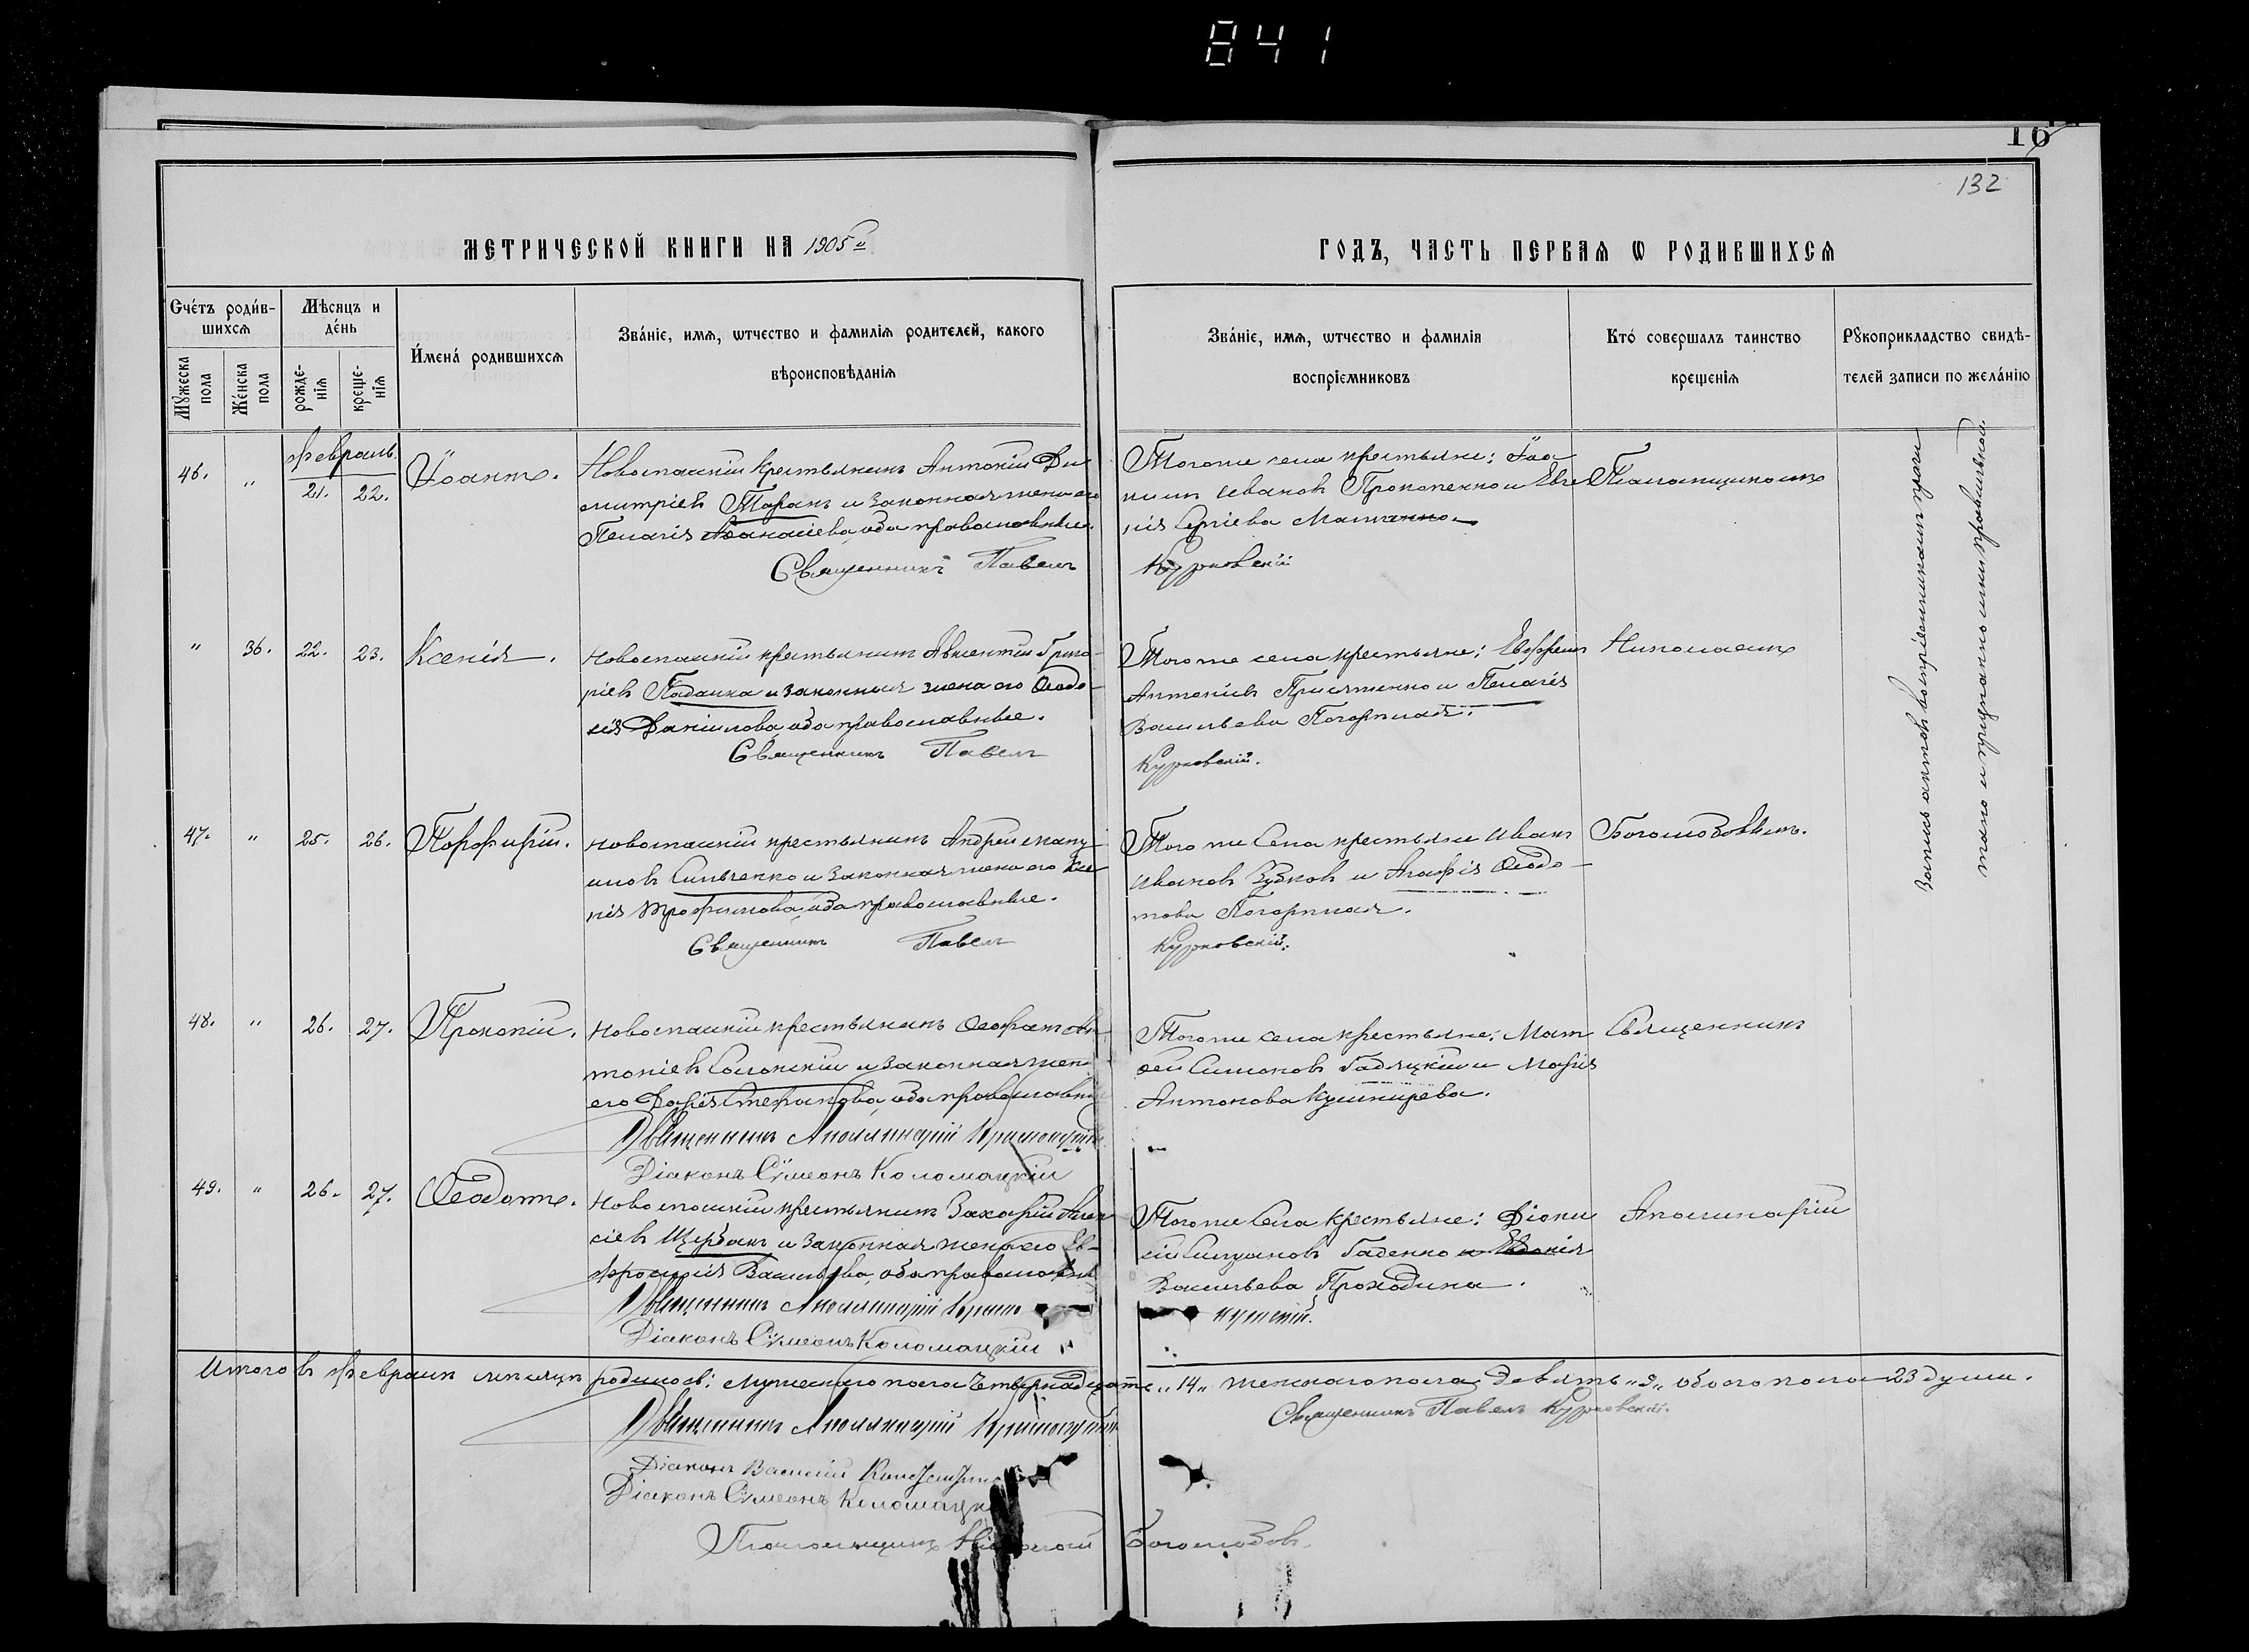 841
16
132
МЕТРИЧЕСКОЙ КНИГИ НА 1905й
ГОДЪ, ЧАСТЬ ПЕРВАѦ Ѡ РОДИВШИХСѦ
Счéтъ роди́в-
шихсѧ
Мꙋжеска
пола
Же́нска
пола
Мѣсяцъ и
де́нь
рожде-
нїѧ
креще-
нїѧ
И́мена́ родившихсѧ
Зва́нїе, имѧ, ѡтчество и фамилїѧ родителей, какого
вѣроисповѣданїѧ
Зва́нїе, имѧ, ѡтчество и фамилїѧ
воспрїемниковъ
Кто́ совершалъ таинство
крещенїѧ
Рꙋкоприкладство свидѣ-
телей записи по жела́нїю
46.
"
Февраль
21. 22.
Іоаннъ.
Новоспаскій крестьянинъ Антоній Ди
митріевъ Таранъ и законная жена его
Пелагія Аѳанасіева, оба православные.
Священникъ Павелъ
Тогоже села крестьяне: Іоа
Ивановъ Прокопенко и Евге
нія Сергіева
Курковскій
Псаломщикомъ
" 36. 22. 23. Ксенія.
Новоспаскій крестьянинъ Авксентій Григо-
ріевъ и законная жена его Ѳеодо-
сія Даніилова, оба православные.
Священникъ Павелъ
Тогоже села крестьяне: Ефремъ
Антоніевъ и Пелагія
Васильева Погорилая.
Курковскій.
Николаемъ
47. " 25. 26. Порфирій.
Новоспаскій крестьянинъ Андрей Ману
иловъ Сильченко и законная жена его Ксе
нія Трофимова, оба православные.
Священникъ Павелъ
Того же села крестьяне Иванъ
Ивановъ Зубковъ и Агафія Ѳеодо-
това Погорилая.
Курковскій.
Боголюбовымъ.
48. " 26. 27. Прокопій.
Новоспаскій крестьянинъ Ѳеофанъ Ан
тоніевъ Солонскій и законная жена
его Дарія Стефанова, оба православные
Священникъ Аполлинарій
Діаконъ Сѵмеонъ Коломацкій
Тогоже села крестьяне: Мат
ѳей Симоновъ Гадяцкій и Марія
Антонова Кушнирева.
Священникъ
49. " 26. 27. Ѳеодотъ.
Новоспаскій крестьянинъ Захарій Алек
сіевъ Щербакъ и законная жена его Ев-
фросинія Васильева, оба православные
Священникъ Аполлинарій
Діаконъ Сѵмеонъ Коломацкій
Тогоже села крестьяне: Діони
сій Гаденко и Евдокія
Васильева Проходина.
Аполинарій
Запись актовъ воспріемниками
тана и признана ими правильной.
Итого въ февралѣ мѣсяцѣ родилось: мужескаго пола четырнадцать „14„ женскаго пола девять „9„ обоего пола 23 души.
Священникъ Аполлинарій
Священникъ Павелъ Курковскій.
Діаконъ Василій
Діаконъ Сѵмеонъ Коломацкій
Псаломщикъ Николай Боголюбовъ.